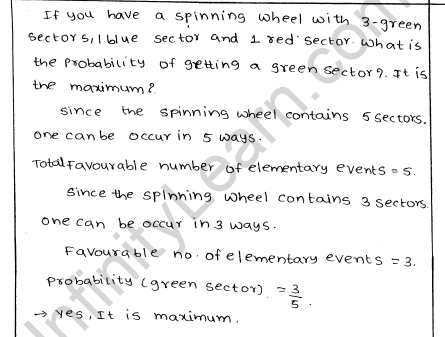 If you have a spinning wheel with 3-green
sectors, 1 blue sector and 1 red sector. what is
the probability of getting a green sector?. It is
the maximum?
since the spinning wheel contains 5 sectors.
one can be occur in 5 ways.
Total Favourable number of elementary events = 5.
Since the spinning wheel contains 3 sectors
one can be occur in 3 ways.
Favourable no. of elementary events = 3.
Probability (green sector) = 3/5.
→ yes, It is maximum.
InfinityLearn.com